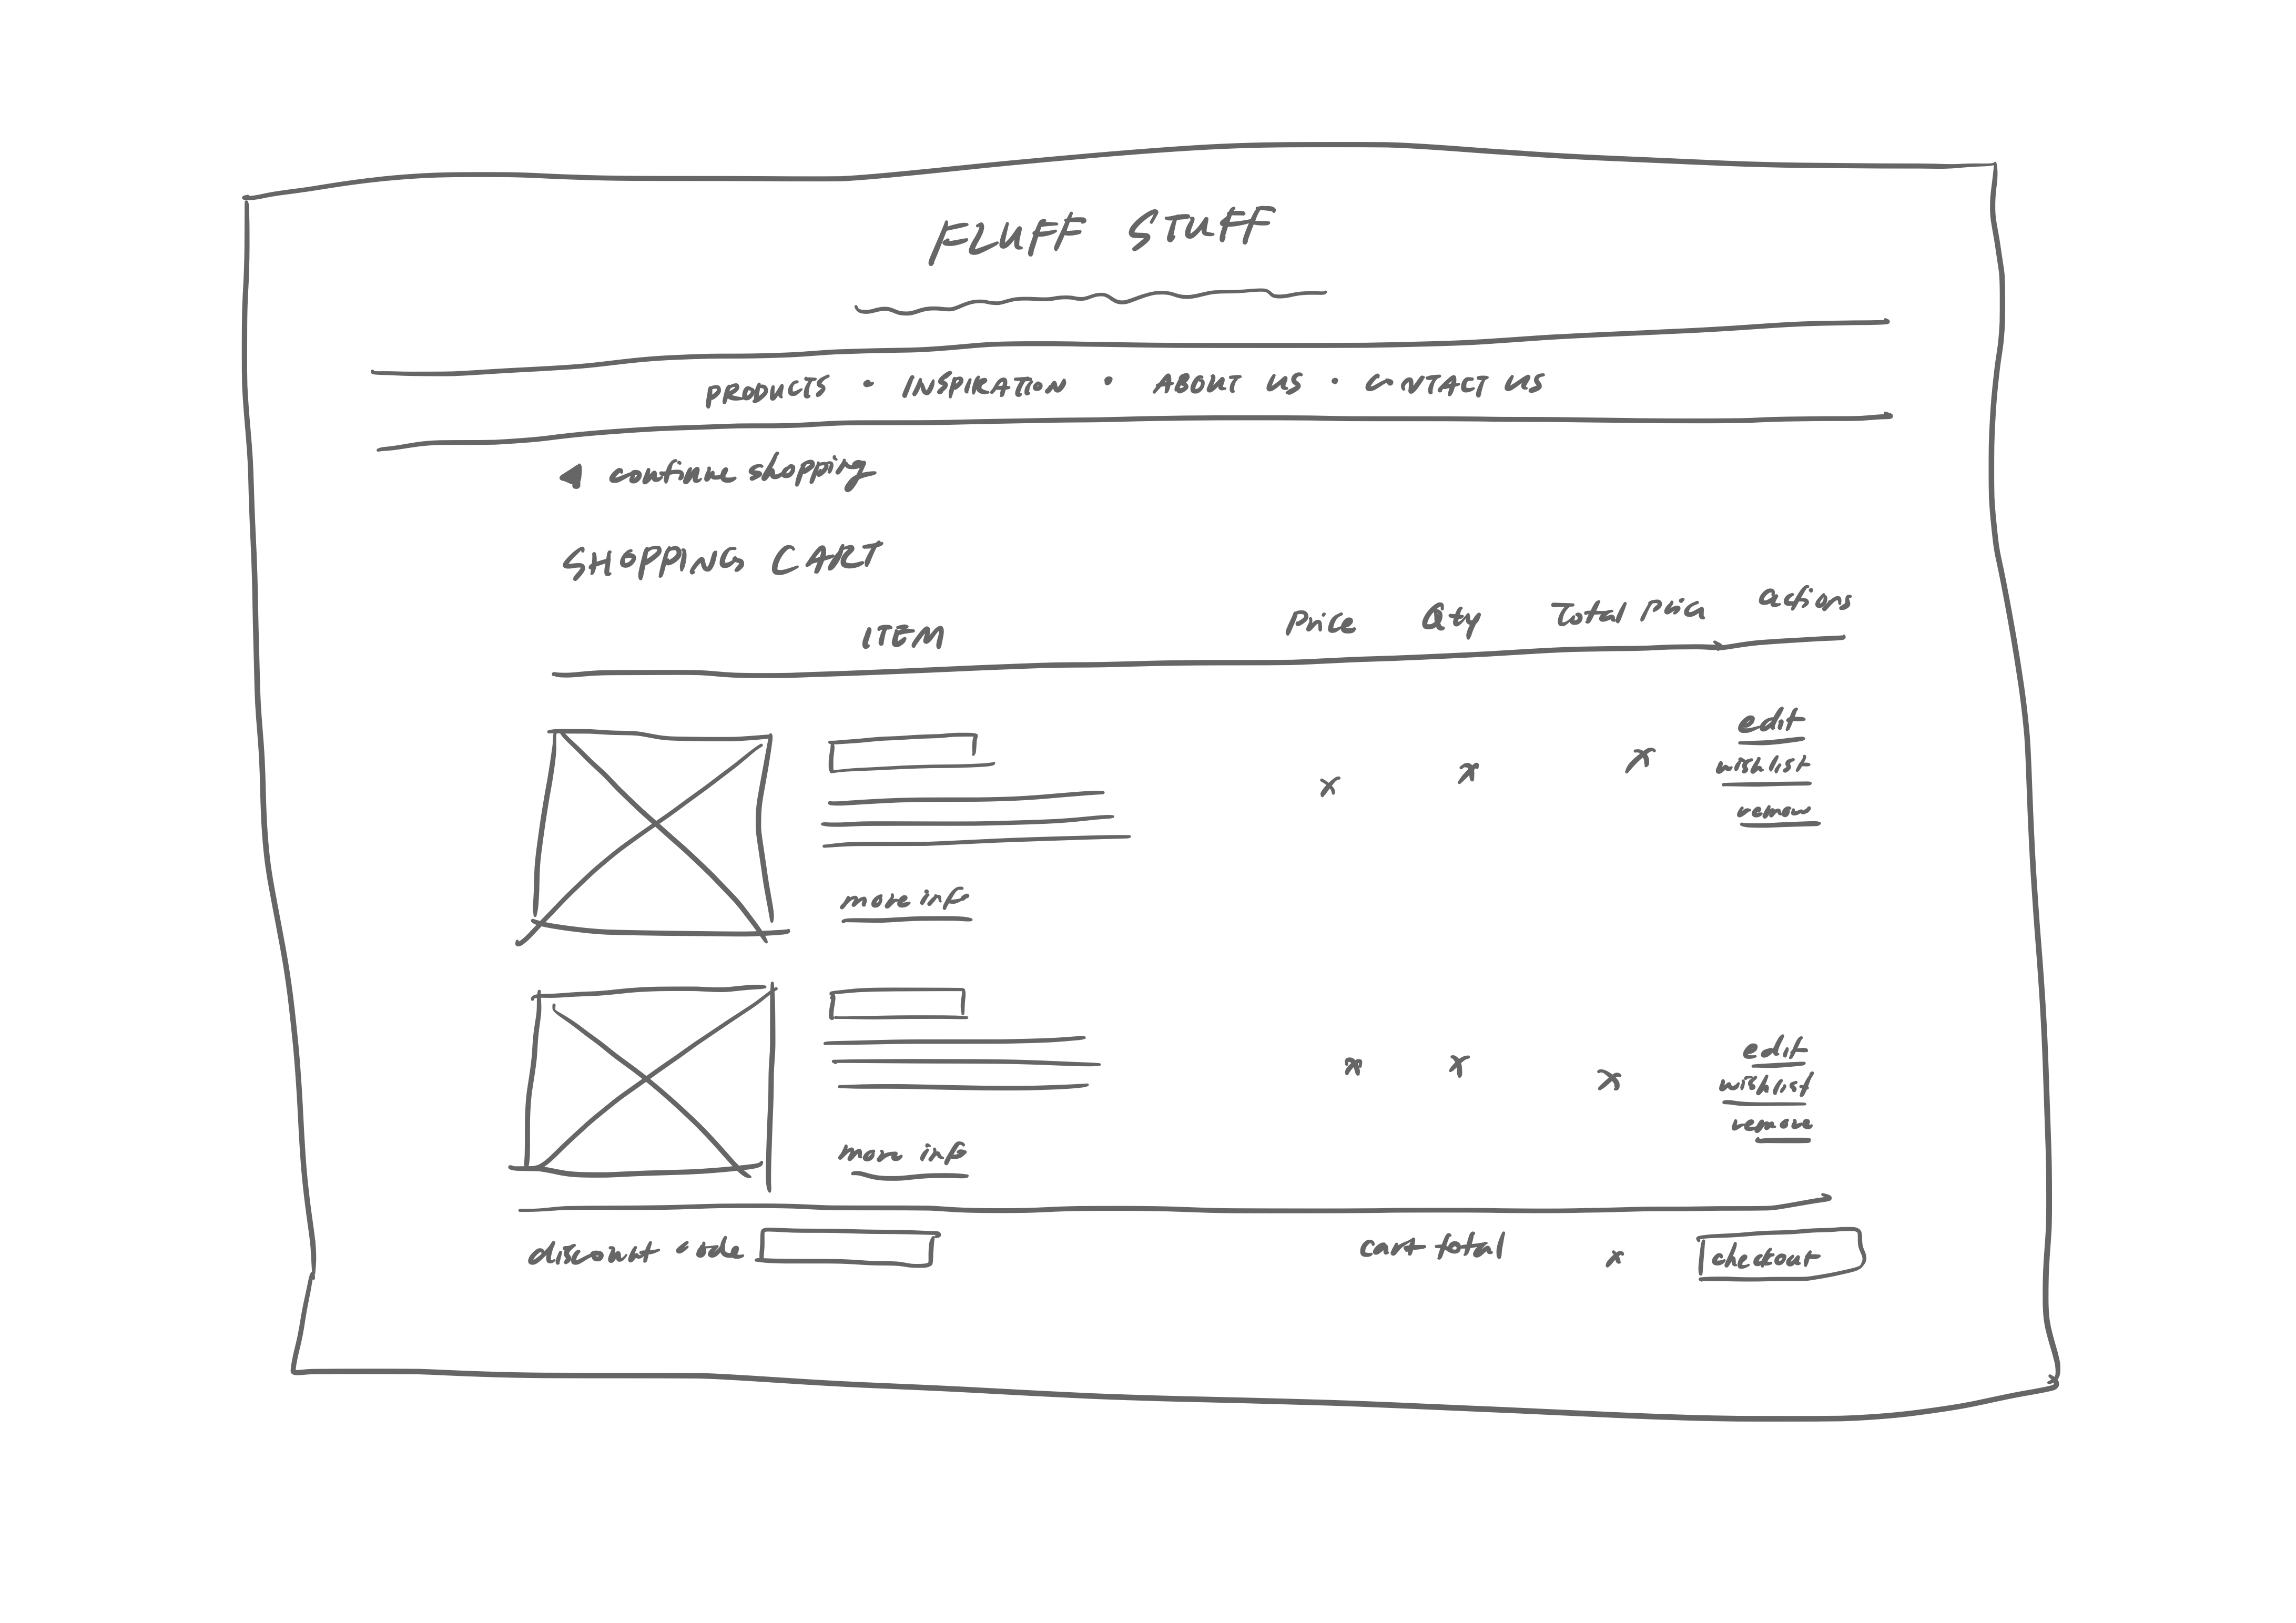 FLUFF STUFF
PRODUCTS • INSPIRATION • ABOUT US • CONTACT US
◀ continue shopping
SHOPPING CART
ITEM Price Qty Total Price actions
edit
x x x wishlist
remove
more info
edit
x x x wishlist
remove
more info
discount code cart total x checkout